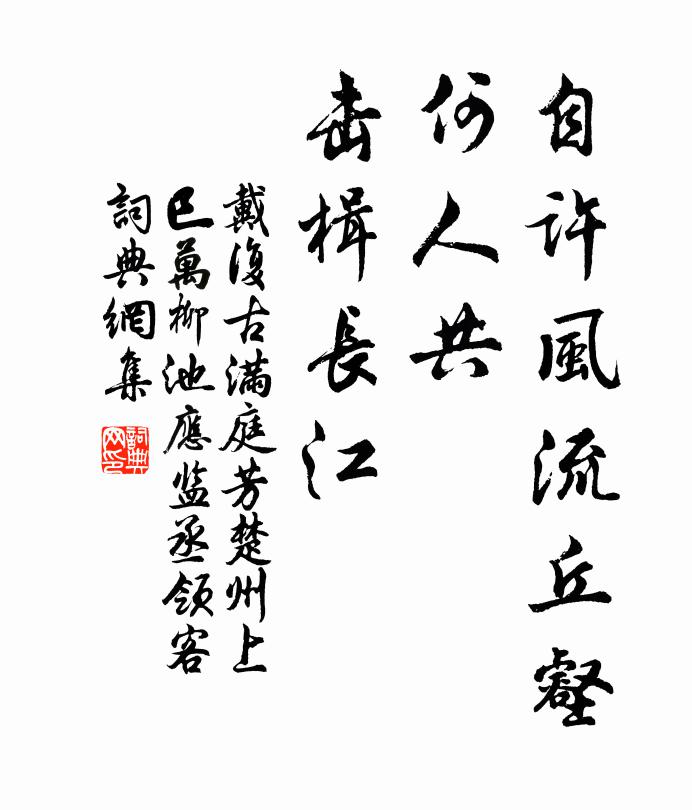 自许風流丘壑
何人共
击楫長江
戴復古满庭芳楚州上
巳萬柳池應监丞領客
詞典網集
詞典
网印